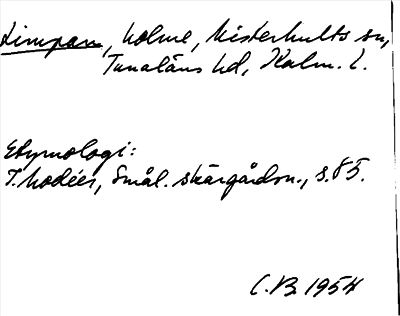 Limpan, holme, Misterhults sn,
Tunaläns hd, Kalm. l.
Etymologi:
T. Modéer, Smål. skärgårdsn., s. 85.
C.B. 1954